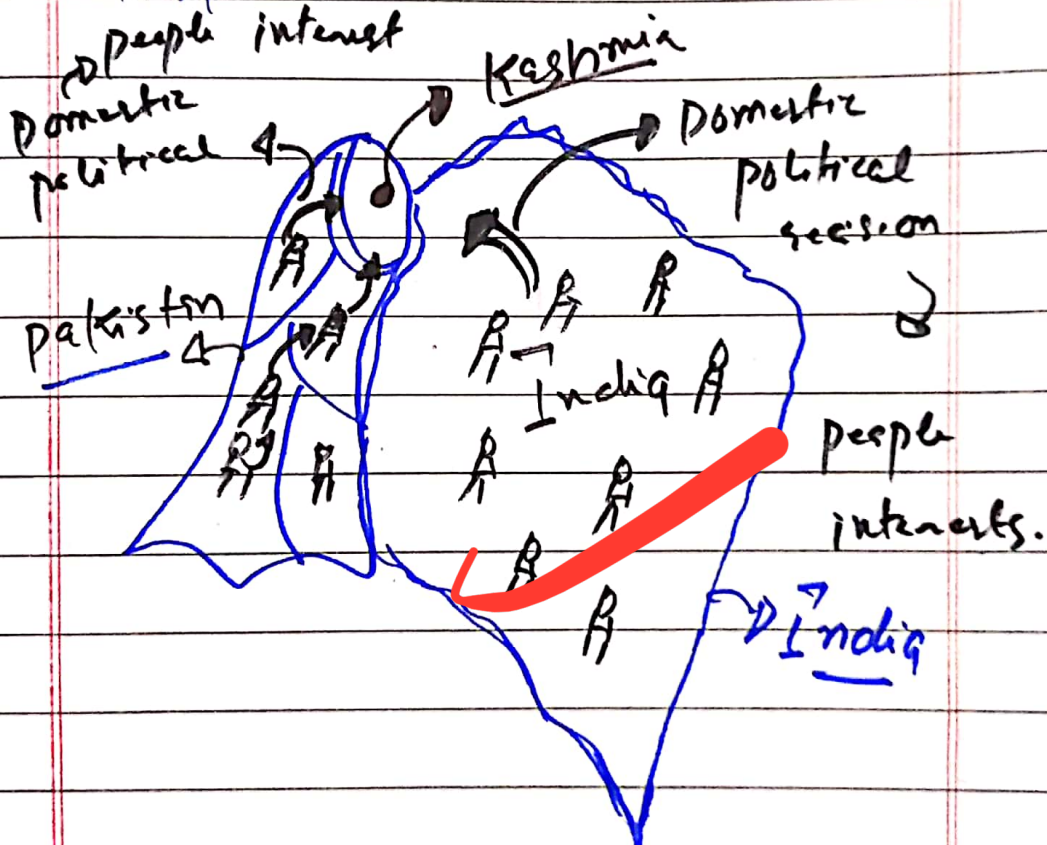 people interest
Kashmia
Domestic
political
Domestic
political
decision
pakistin
India
people
interests.
India